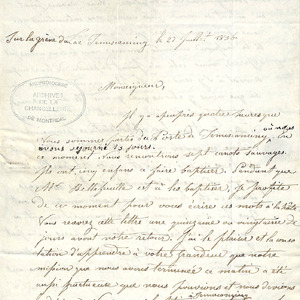 Sur la grève du Lac Temiscaming, le 27 Juillet 1836
ARCHEVECHE
ARCHIVES
DE LA
CHANCELLERIE
DE MONTREAL
Monseigneur,
Il y a à peu près quatre heures que
nous sommes partis du Poste de Temiscaming, où nous
avons séjourné 13 jours. En
ce moment nous rencontrons sept canots sauvages.
Ils ont cinq enfans à faire baptiser. Pendant que
Mr. Bellefeuille est à les baptiser, je profite
de ce moment pour vous écrire ces mots à la hâte.
Vous recevrez cette lettre une quinzaine ou vingtaine de
jours avant notre retour. J'ai le plaisir et la conso
lation d'apprendre à votre Grandeur que notre
mission que nous avons terminée ce matin a été
aussi fructueuse que nous pouvions et nous devions
Temiscaming